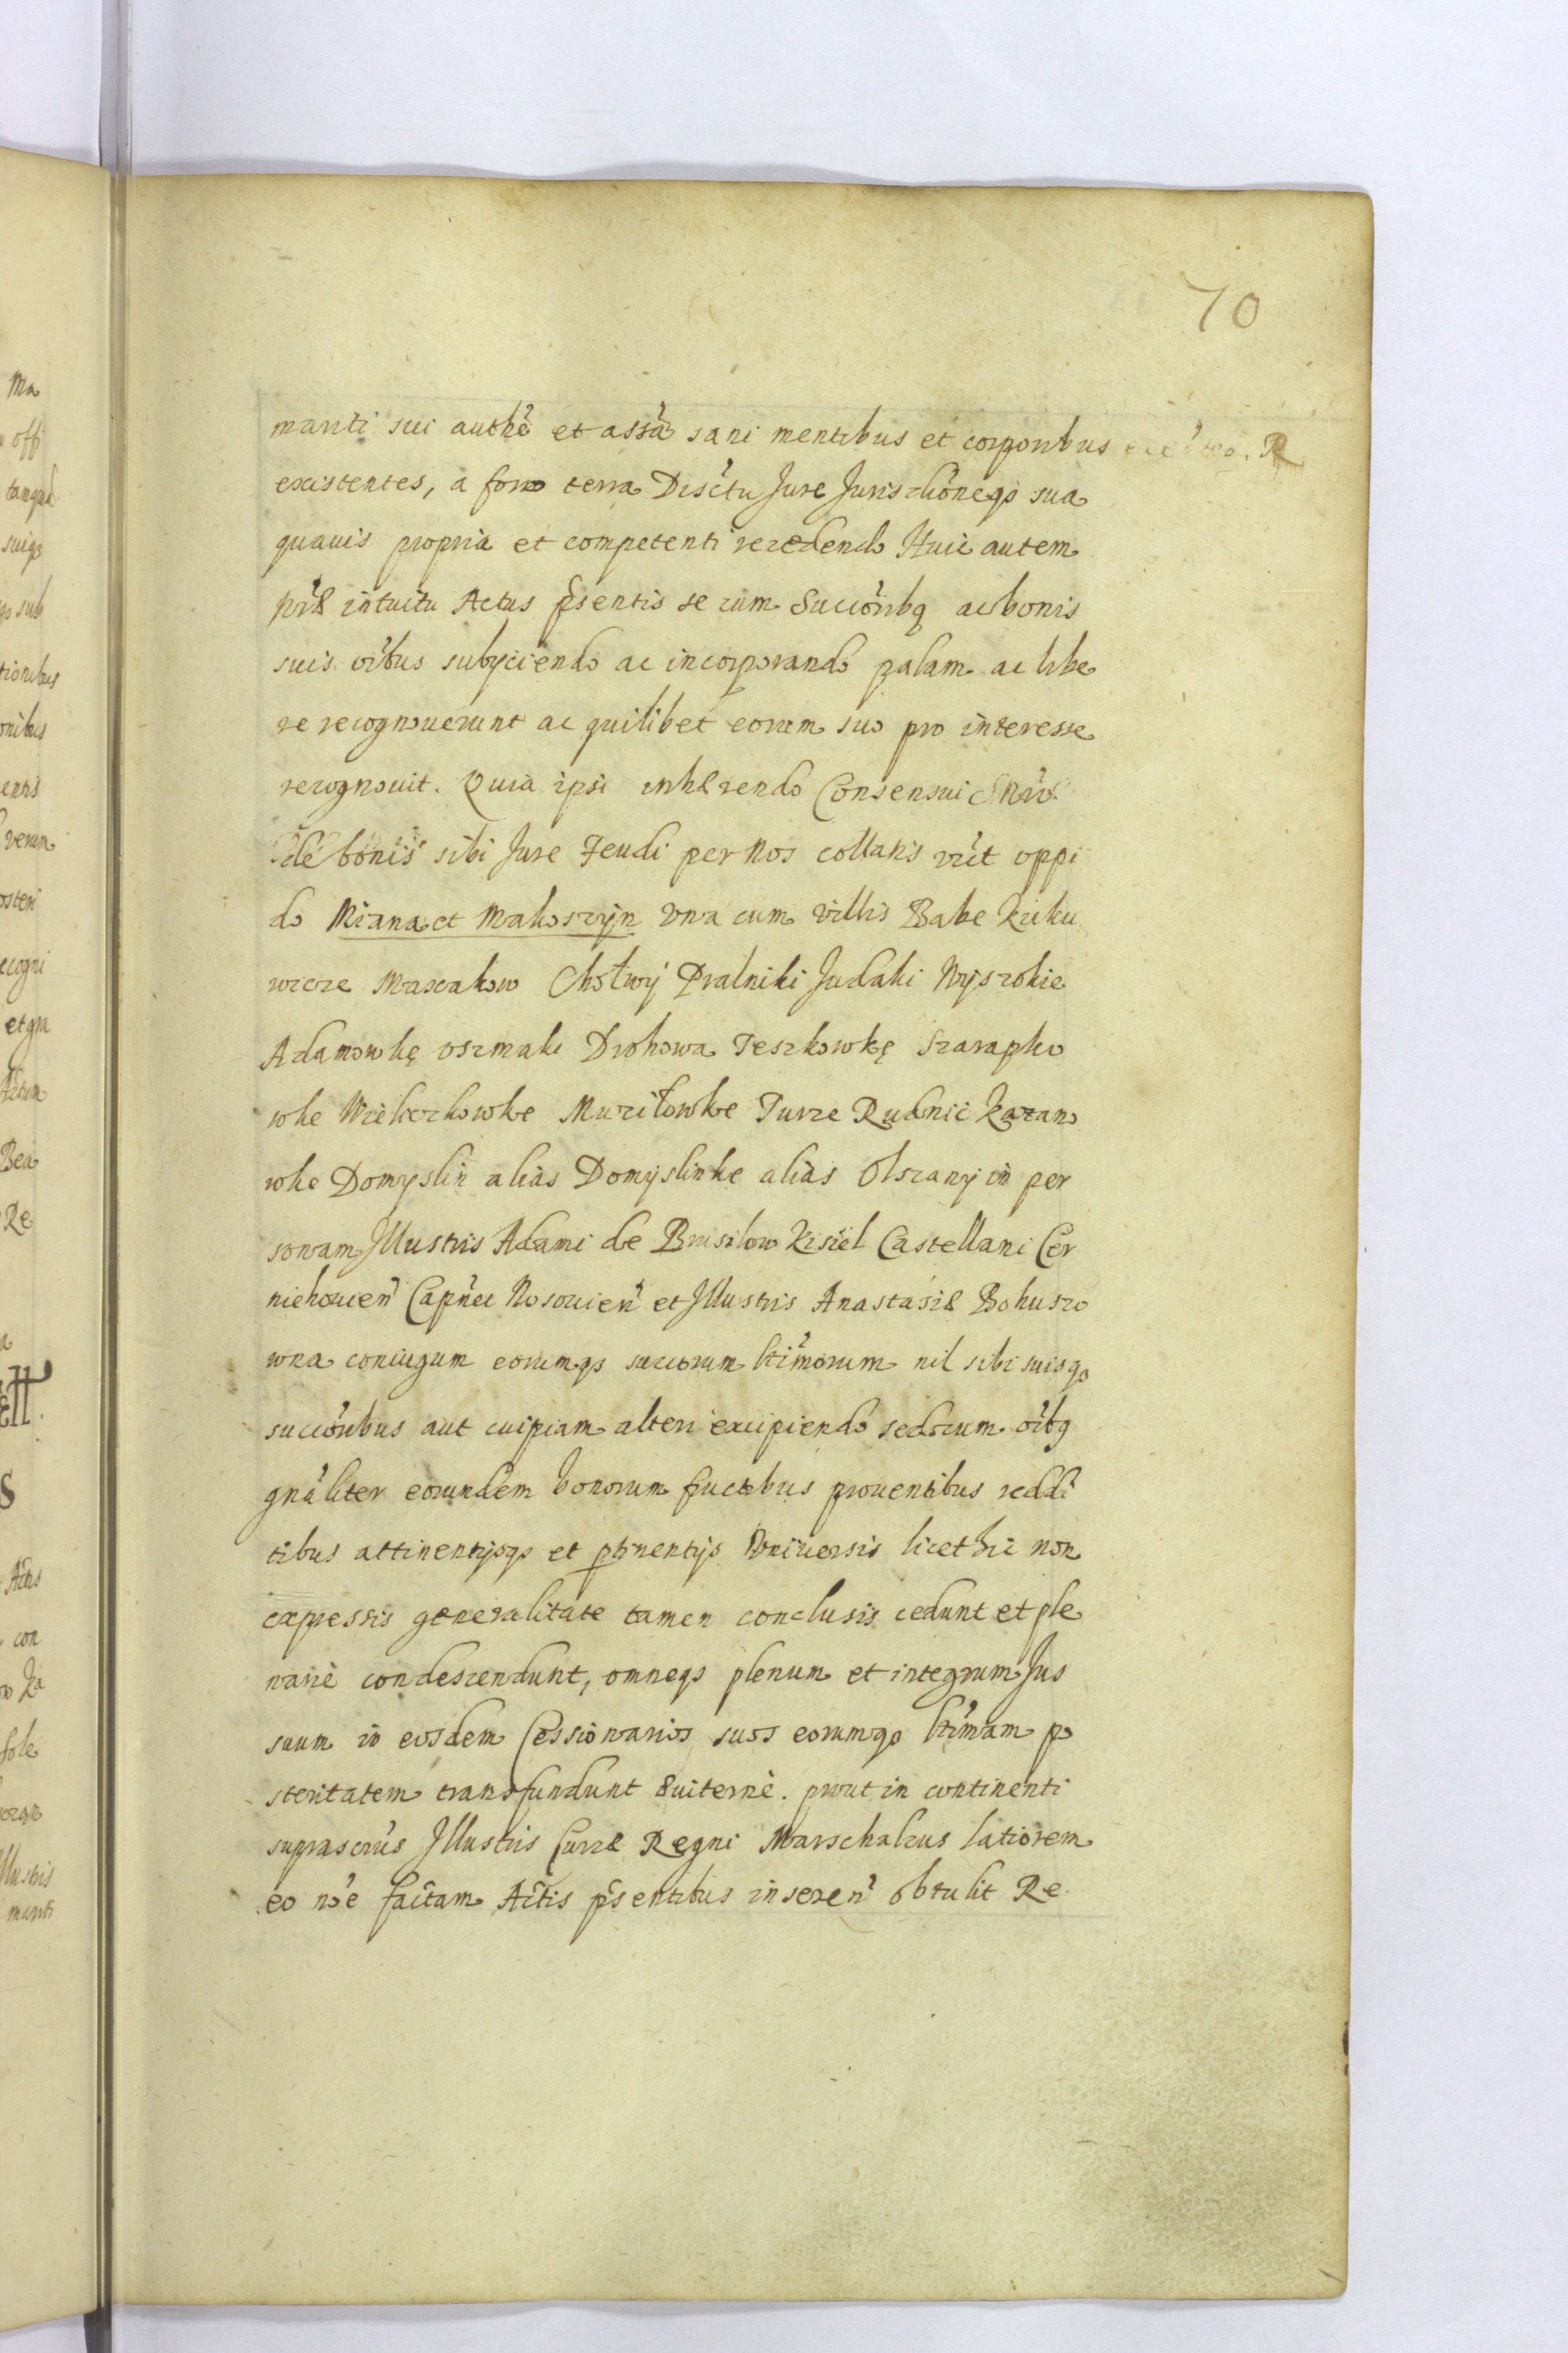 70
mariti sui authẽ et assã sani mentibus et corporibus
existentes, a foro terra Disctu Jure Jurisdiõneqз sua
quauis propria et competenti recedendo Huic autem
pñti intuitu Actus p̃sentis se cum Succõribq ac bonis
suis oĩbus subyciendo ac incorporando palam ac libe
re recognouerunt ac quilibet eorum suo pro interesse
recognouit. Quia ipsi inhærendo Consensui
de bonis sibi Jure Feudi per Nos collatis vĩct oppi
do Miana et Makoszyn vna cum villis Babe Kuku
wicze Maxakow Chotwy Pralniki Judaki Wyszokie
Adamowkę oszmaki Drohowa Teszkowkę Szarapko
wke Wieluczkowke Muzitowke Turze Rudnic Kazano
wke Domyslin alias Domyslinke alias Olszany in per
sonam Illustris Adami de Brusilow Kisiel Castellani Cer
niehouien̄ Capñei Nosouien̄ et Illustris Anastasiæ Bohuszo
wna coniugum eorumqз succorum ltĩmorum nil sibi suisqз
succõribus aut cuipiam alteri excipiendo sed cum oĩbq
gnãliter eorundem bonorum fructibus prouentibus reddi
tibus attinentijsqз et ptinentijs Vniuersis licet hic non
expressis generalitate tamen conclusis cedunt et ple
narie condescendunt, omneqз plenum et integrum Jus
suum in eosdem Cessionarios suos eorumqз ltĩmam po
steritatem transfundunt æuiterne. prout in continenti
suprascrus Illustris Curiæ Regni Marschalcus latiorem
eo nõe factam Actis p̃sentibus inseren̄ obtulit Re
Ma
off
suiqз
qз sub
tionibus
onibus
entis
verum
osteri
recogni
et gra
Actum
Bea
Re
Actis
con
Ka
sole
Illustris
mariti